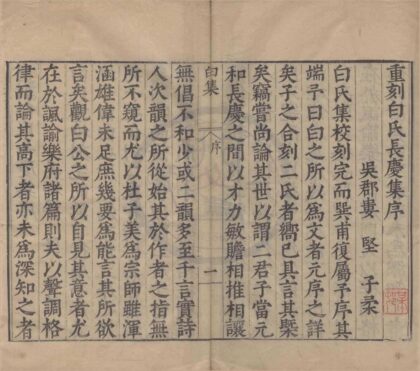 重刻白氏長慶集序
吳郡婁 堅 子柔
白氏集校刻完而巽甫復屬予序其
端予曰曰之所以爲文者元序之詳
矣予之合刻二氏者嚮已具言其槩
矣竊嘗尚論其世以謂二君子當元
和長慶之間以才力敏贍相推相讓
白集 序 一
無倡不和少或二韻多至千言實詩
人次韻之所從始其於作者之指無
所不窺而尤以杜子美爲宗師雖渾
涵雄偉未足庶幾要爲能言其所欲
言矣觀白公之所以自見其意者尤
在於諷諭樂府諸篇則夫以聲調格
律而論其高下者亦未爲深知之者